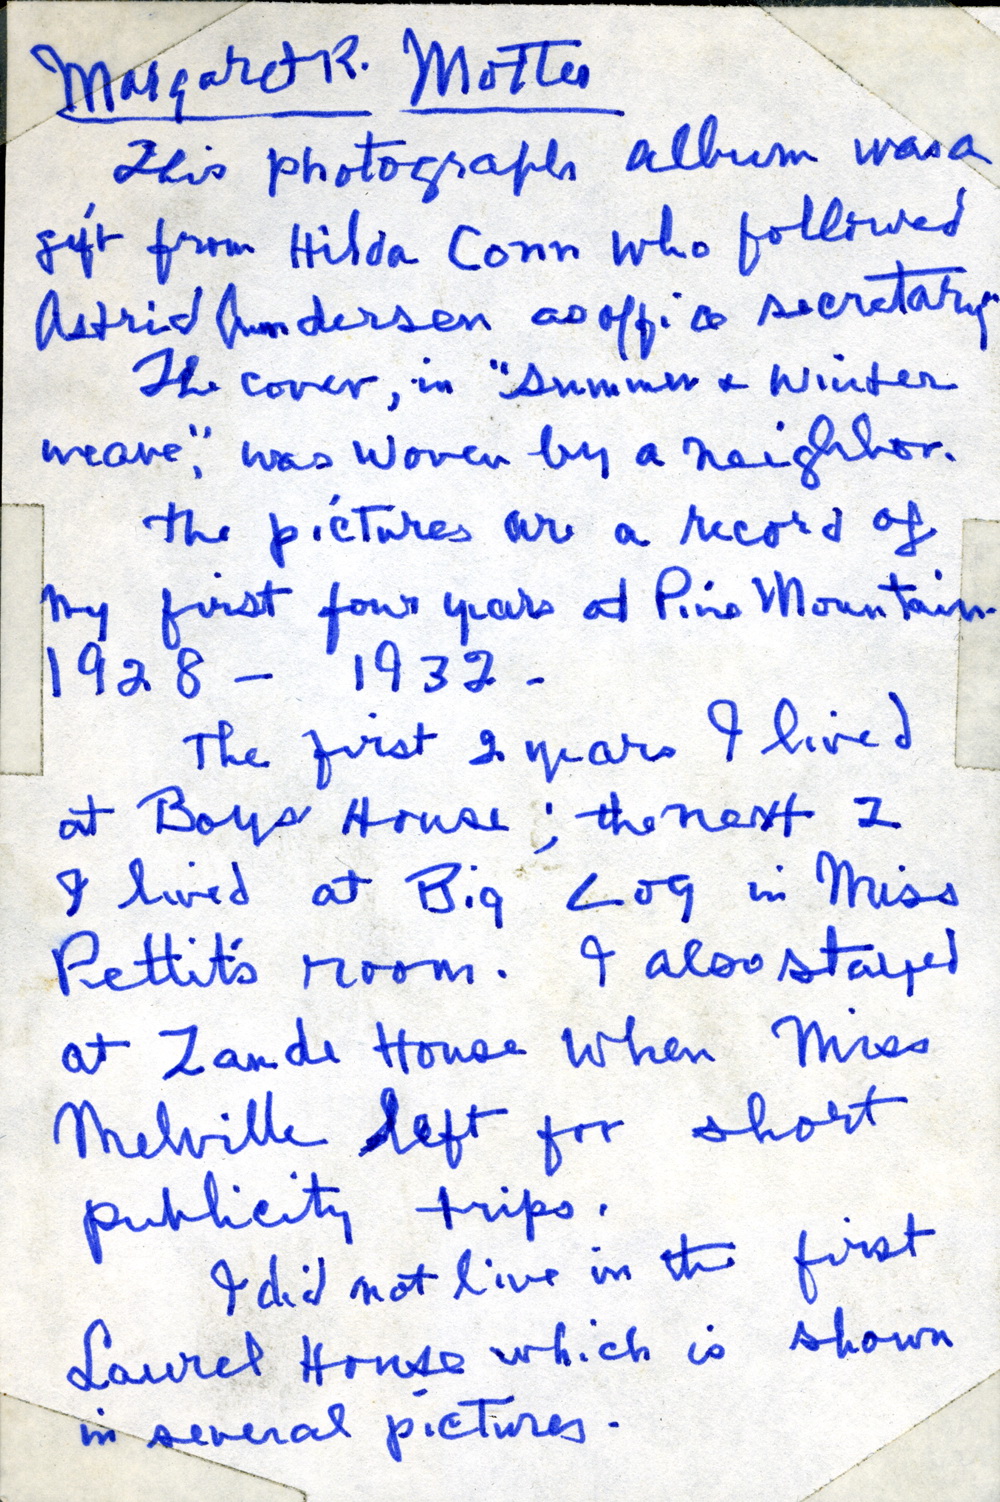 Margaret R. Motter
This photograph album was a
gift from Hilda Conn who followed
Astrid Anndersen as office secretary"
The cover, in "summer & winter
weave", was woven by a neighbor.
The pictures are a record of
my first four years at Pine Mountain.
1928 - 1932 -
The first 2 years I lived
at Boys House; the next 2
I lived at Big Log in Miss
Pettit's room. I also stayed
at Zande House when Miss
Melville left for short
publicity trips.
I did not live in the first
Laurel House which is shown
in several pictures.